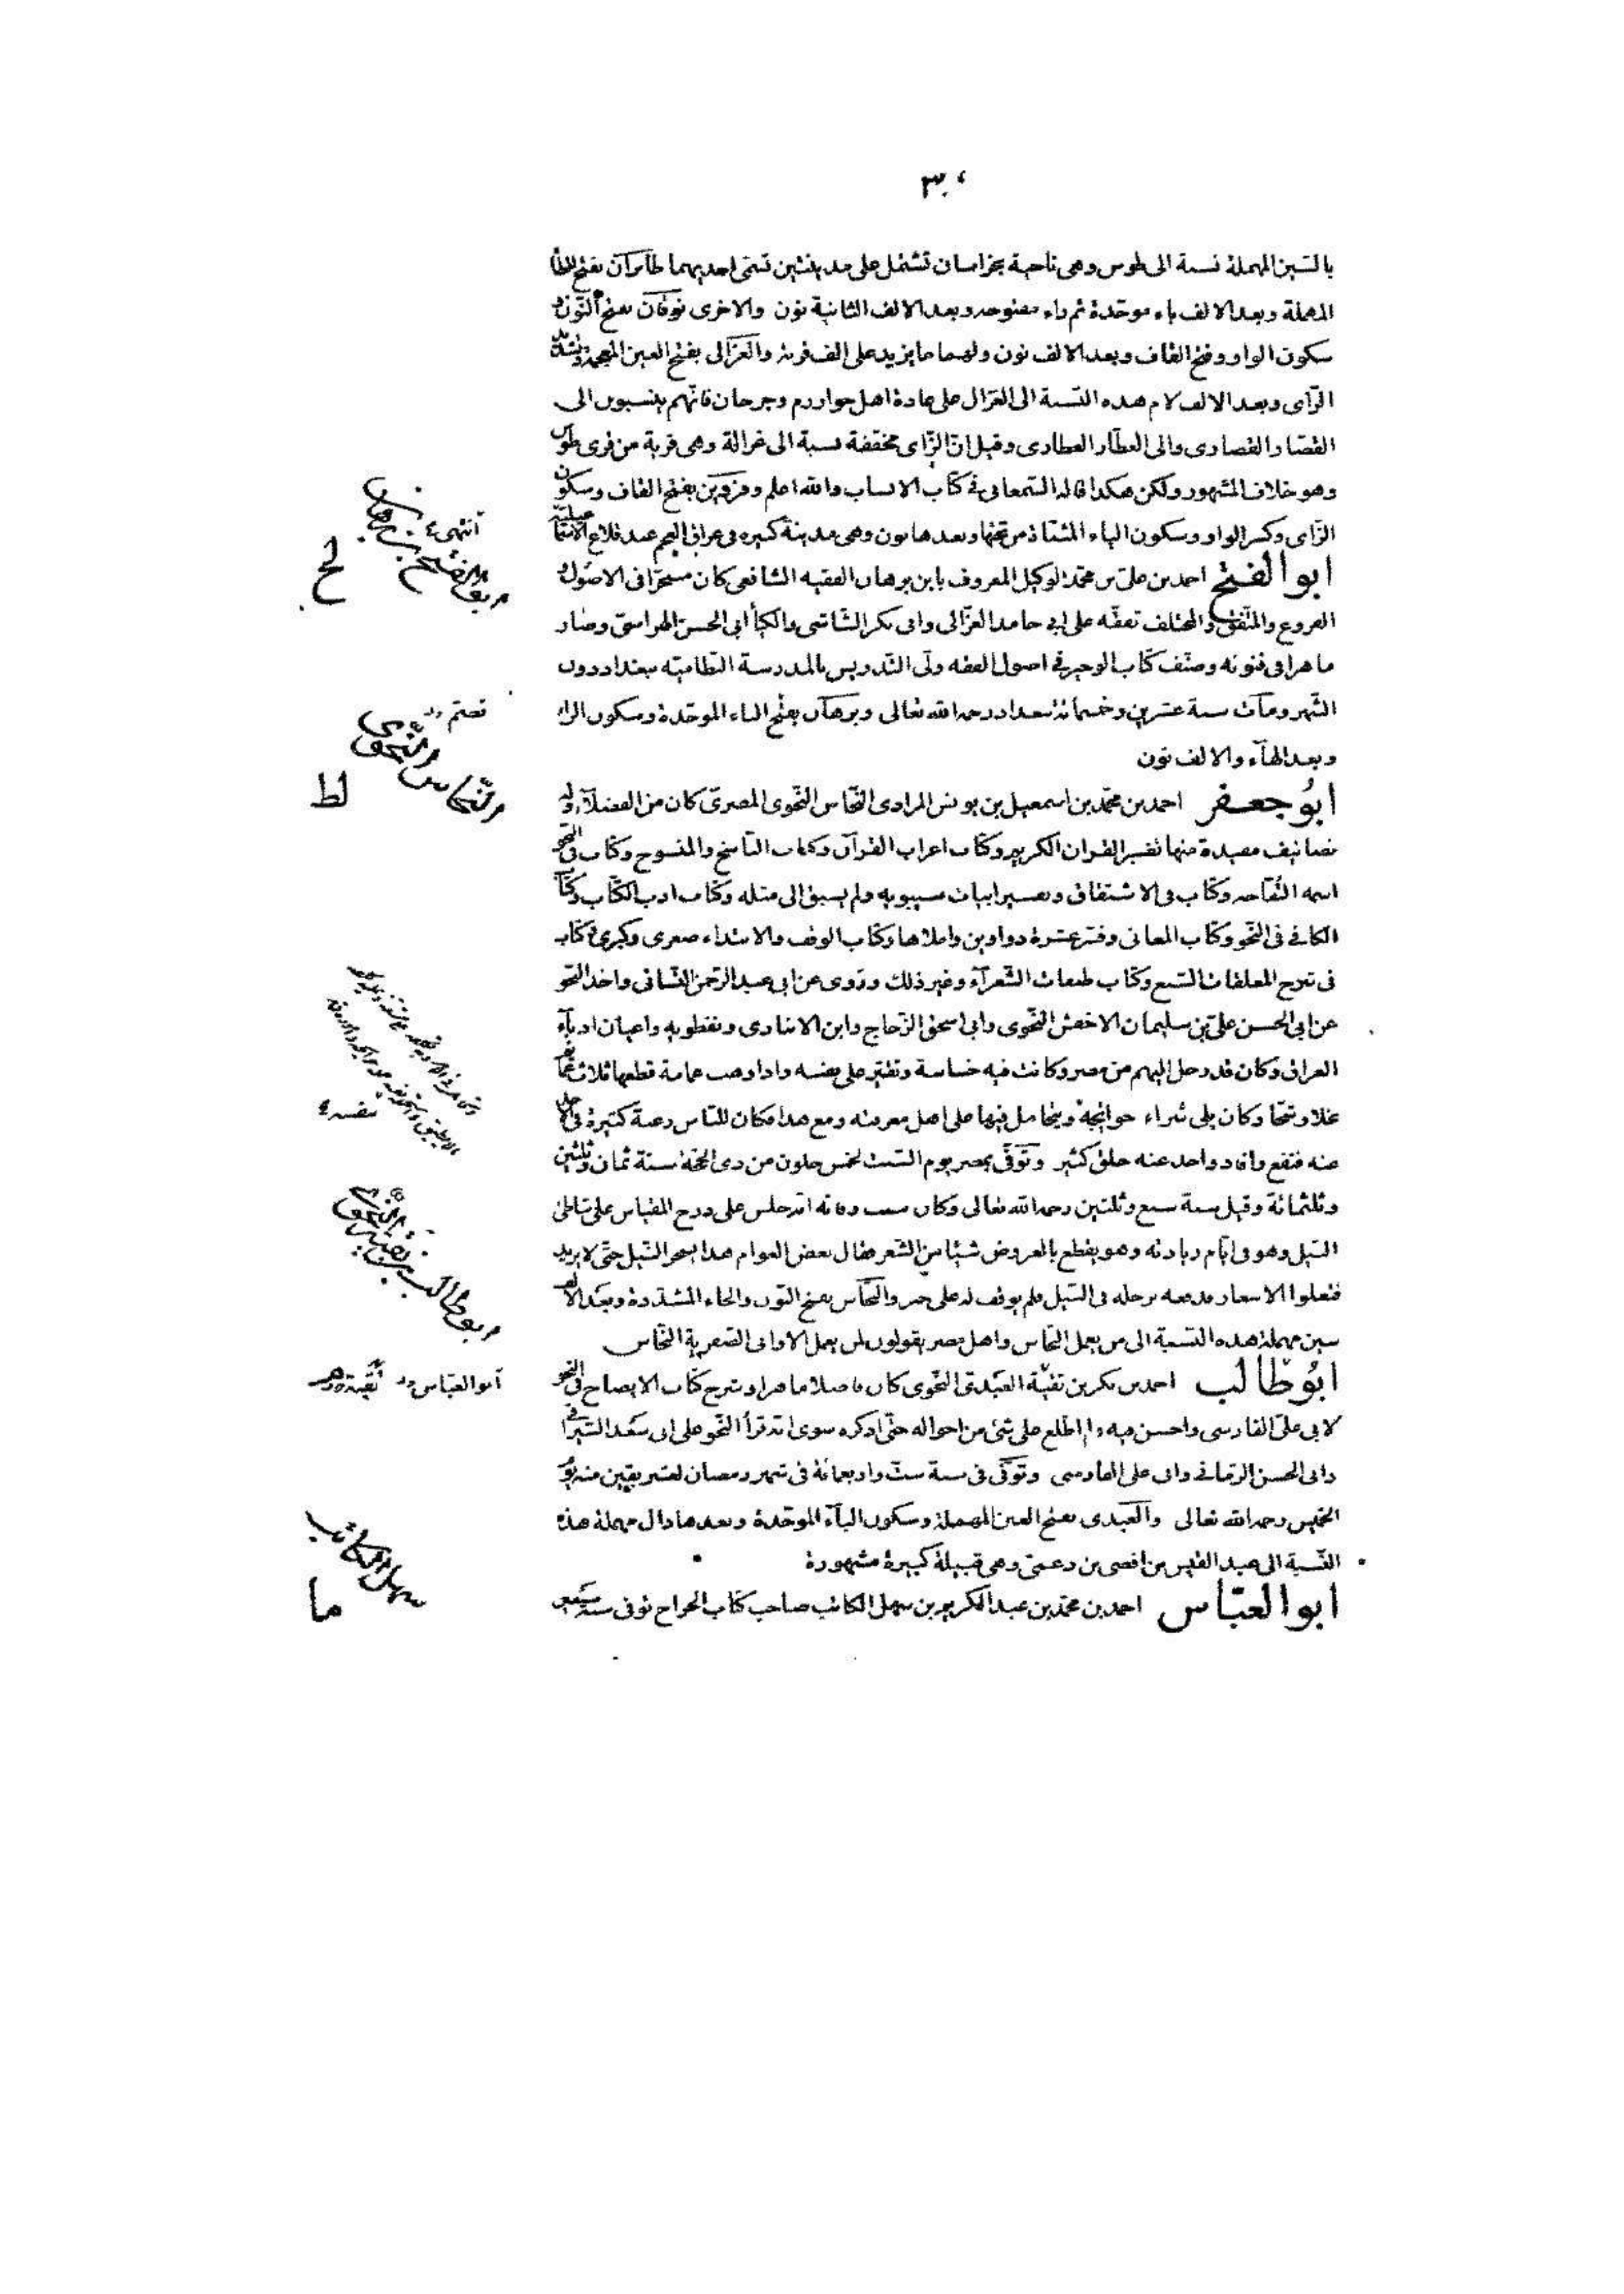 ٣٠
بالسين المهملة نسبة الى طوس وهى ناحية بخراسان تشتمل على مدينتين تسمى احديهما طابران بفتح الطا
المهملة وبعد الالف باء موحدة ثم راء مفتوحه وبعد الالف الثانية نون والاخرى نوقان بفتح النون و
سكون الواو وفتح القاف وبعد الالف نون ولهما ما يزيد على الف قرية والغزالى بفتح الغين المعجمة وتشديد
الزاى وبعد الالف لام هذه النسبة الى الغزال على عادة اهل خوارزم وجرجان فانهم ينسبون الى
القصار القصارى والى العطار العطارى وقيل ان الزاى مخففة نسبة الى غزالة وهى قرية من قرى طوس
وهو خلاف المشهور ولكن هكذا قاله السمعانى فى كتاب الانساب والله اعلم وقزوين بفتح القاف وسكون
الزاى وكسر الواو وسكون الياء المثناة من تحتها وبعدها نون وهى مدينة كبيره فى عراق العجم عند قلاع الاسماعيلية
ابو الفتح احمد بن على بن محمد الوكيل المعروف بابن برهان الفقيه الشافعى كان متبحرا فى الاصول و
الفروع والمتفق والمختلف تفقه على ابى حامد الغزالى وابى بكر الشاشى والكيا ابى الحسن الهراسى وصار
ماهرا فى فنونه وصنف كتاب الوجيز فى اصول الفقه ولى التدريس بالمدرسة النظامية ببغداد دون
الشهر ومات سنة عشرين وخمسمائة ببغداد رحمه الله تعالى وبرهان بفتح الباء الموحدة وسكون الراء
وبعد الهاء والالف نون
ابو جعفر احمد بن محمد بن اسمعيل بن يونس المرادى النحاس النحوى المصرى كان من الفضلاء وله
تصانيف مفيدة منها تفسير القران الكريم وكتاب اعراب القرآن وكتاب الناسخ والمنسوخ وكتاب فى النحو
اسمه التفاحه وكتاب فى الاشتقاق وتفسير ابيات سيبويه ولم يسبق الى مثله وكتاب ادب الكتاب وكتاب
الكافى فى النحو وكتاب المعانى وفسر عشرة دواوين واملاها وكتاب الوقف والابتداء صغرى وكبرى وكتاب
فى شرح المعلقات السبع وكتاب طبقات الشعرآء وغير ذلك وروى عن ابى عبد الرحمن النسائى واخذ النحو
عن ابى الحسن على بن سليمان الاخفش النحوى وابى اسحق الزجاج وابن الانبارى ونفطويه واعيان ادباء
العراق وكان قد رحل اليهم من مصر وكانت فيه خساسة وتقتير على نفسه واذا وهب عمامة قطعها ثلاث عمائم
بخلا وشحا وكان يلى شراء حوائجه ويتحامل فيها على اهل معرفته ومع هذا فكان للناس رغبة كثيرة فى الاخذ
عنه فنفع وافاد واخذ عنه خلق كثير وتوفى بمصر يوم السبت لخمس خلون من ذى الحجة سنة ثمان وثلثين
وثلثمائة وقيل سنة سبع وثلثين رحمه الله تعالى وكان سبب وفاته انه جلس على درج المقياس على شاطئ
النيل وهو فى ايام زيادته وهو يقطع بالعروض شيئا من الشعر فقال بعض العوام هذا يسحر النيل حتى لا يزيد
فتغلوا الاسعار فدفعه برجله فى النيل فلم يوقف له على خبر والنحاس بفتح النون والحاء المشددة وبعد الالف
سين مهملة هذه النسبة الى من يعمل النحاس واهل مصر يقولون لمن يعمل الاوانى الصفرية النحاس
ابو طالب احمد بن بكر بن بقية العبدى النحوى كان فاضلا ماهرا وشرح كتاب الايضاح فى النحو
لابى على الفارسى واحسن فيه ولم اطلع على شئ من احواله حتى اذكره سوى انه قرأ النحو على ابى سعيد السيرافى
وابى الحسن الرمانى وابى على الفارسى وتوفى فى سنة ست واربعمائة فى شهر رمضان لعشر بقين منه يوم
الخميس رحمه الله تعالى والعبدى بفتح العين المهملة وسكون الباء الموحدة وبعدها دال مهملة هذه
النسبة الى عبد القيس بن افصى بن دعمى وهى قبيلة كبيرة مشهورة
ابو العباس احمد بن محمد بن عبد الكريم بن سهل الكاتب صاحب كتاب الخراج توفى سنة سبعين
انتهى
ابو الفتح بن برهان
لح
النحاس النحوى
لط
نفسه
ابو طالب
ابو العباس
سهل الكاتب
ما